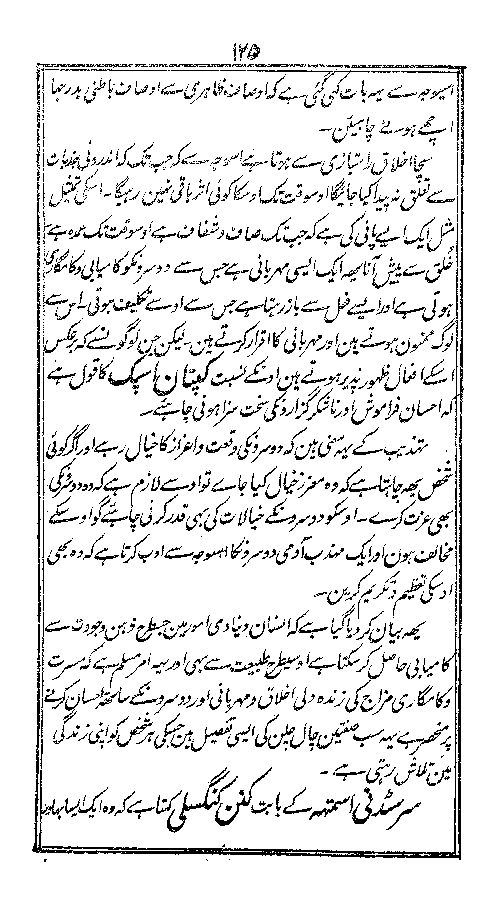 ۱۲۵
اسیوجہ سے یہہ بات کہی گئی ہے کہ اوصاف ظاہری سے اوصاف باطنی بدرجہا
اچھے ہونے چاہیئں۔
سچا اخلاق راستبازی سے ہوتا ہے اسوجہ سے کہ جب تک کہ اندرونی جذبات
سے تعلق نہ پیدا کیا جائیگا اوسوقت تک اوسکا کوئی اثر باقی نہین رہیگا۔ اسکی تمثیل
مثل ایک ایسے پانی کی ہے کہ جب تک صاف و شفاف ہے اوسوقت تک عمدہ ہے
خلق سے پیش آنا یہہ ایک ایسی مہربانی ہے جس سے دوسرونکو کامیابی و کامگاری
ہوتی ہے اور ایسے فعل سے باز رہتا ہے جس سے اوسے تکلیف ہوتی۔ اس سے
لوگ ممنون ہوتے ہین اور مہربانی کا اقرار کرتے ہین۔ لیکن جن لوگونسے کہ برعکس
اسکے افعال ظہور پذیر ہوتے ہین اونکے نسبت کپتان اسپک کا قول ہے
کہ احسان فراموش اور ناشکرگزارونکی سخت سزا ہونی چاہئے۔
تہذیب کے یہہ معنی ہین کہ دوسرونکی وقعت و اعزاز کا خیال رہے اور اگر کوئی
شخص یہہ چاہتا ہے کہ وہ معزز خیال کیا جاے تو اوسے لازم ہے کہ وہ دوسرونکی
بھی عزت کرے۔ اوسکو دوسرونکے خیالات کی بھی قدر کرنی چاہئے گو اوسکے
مخالف ہون اور ایک مہذب آدمی دوسرونکا اسوجہ سے ادب کرتا ہے کہ وہ بھی
اوسکی تعظیم و تکریم کرین۔
یہہ بیان کر دیا گیا ہے کہ انسان دنیادی امور مین جسطرح ذہن و جودت سے
کامیابی حاصل کر سکتا ہے اوسیطرح طبیعت سے بھی اور یہہ امر مسلم ہے کہ مسرت
و کامگاری مزاج کی زندہ دلی اخلاق و مہربانی اور دوسرونکے ساتھ احسان کرنے
پر منحصر ہے یہہ سب صفتین چال چلن کی ایسی تفصیل ہین جسکی ہر شخص کو اپنی زندگی
مین تلاش رہتی ہے۔
سر سڈنی اسمتھہ کے بابت کنن کنگسلی کہتا ہے کہ وہ ایک ایسا بہادر